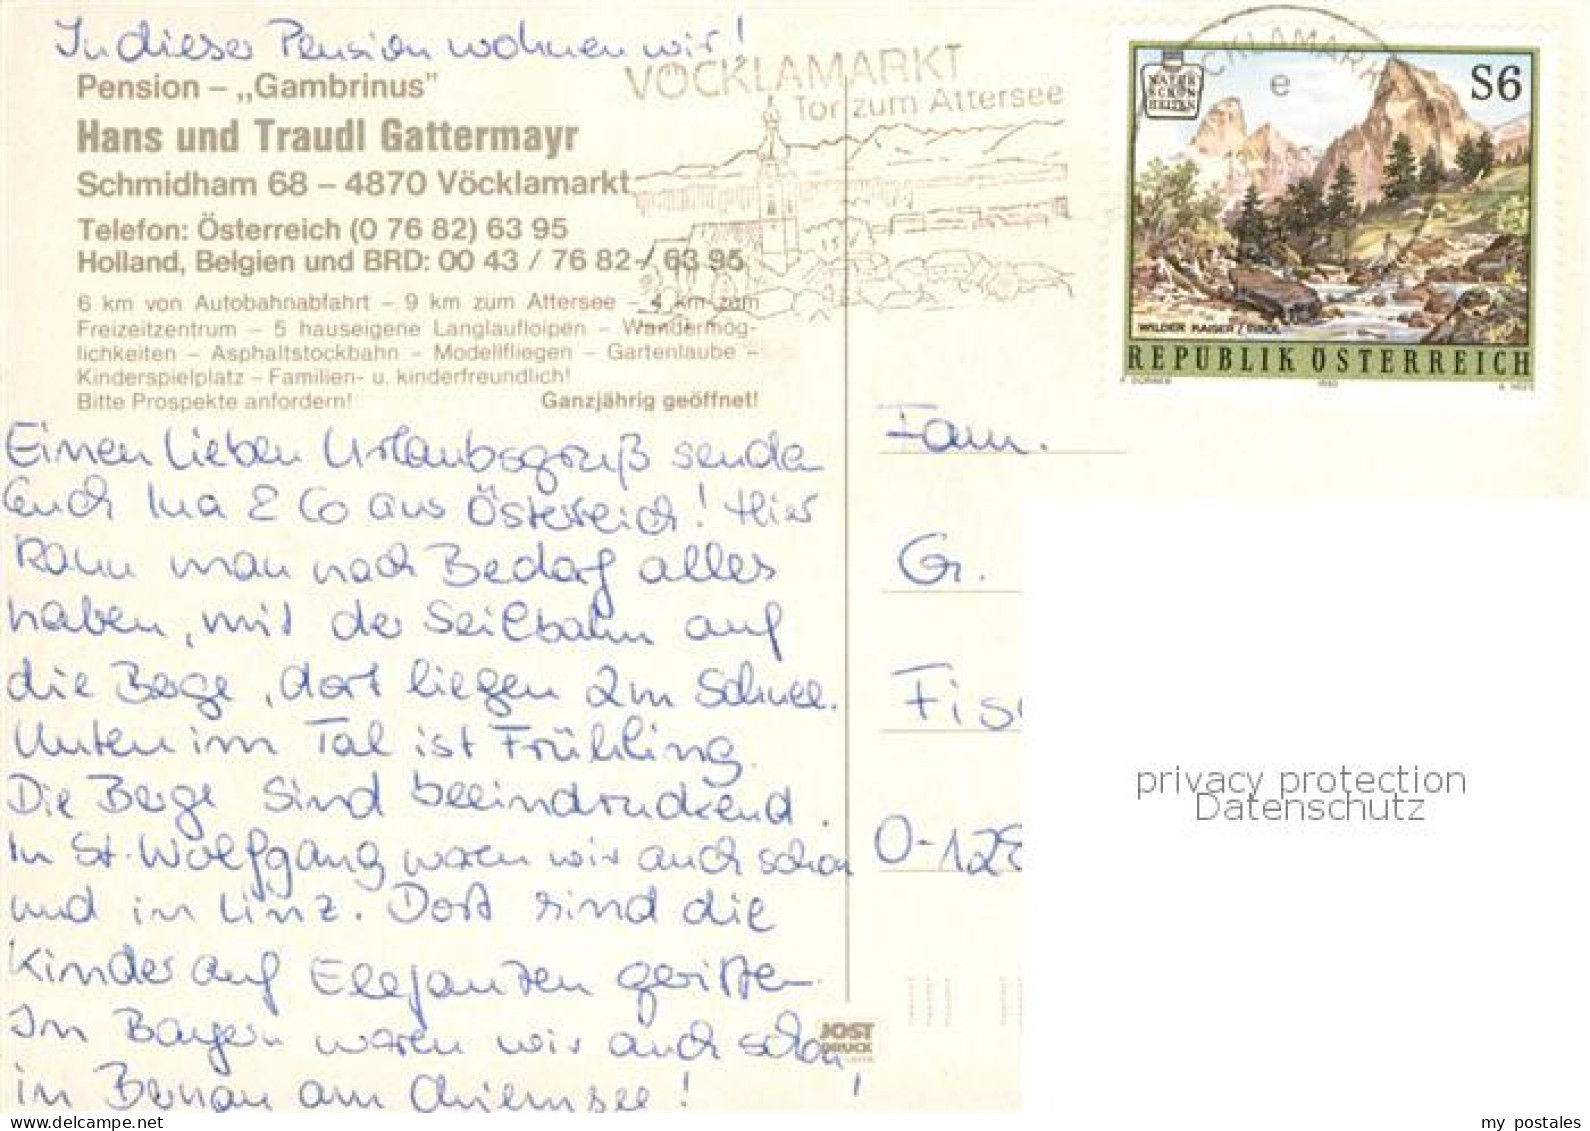 In dieser Pension wohnen wir!
Pension – „Gambrinus"
Hans und Traudl Gattermayr
Schmidham 68 – 4870 Vöcklamarkt
Telefon: Österreich (0 76 82) 63 95
Holland, Belgien und BRD: 00 43 / 76 82 / 63 95
6 km von Autobahnabfahrt – 9 km zum Attersee – 4 km zum
Freizeitzentrum – 5 hauseigene Langlaufloipen – Wandermög-
lichkeiten – Asphaltstockbahn – Modellfliegen – Gartenlaube –
Kinderspielplatz – Familien- u. kinderfreundlich!
Bitte Prospekte anfordern! Ganzjährig geöffnet!
VÖCKLAMARKT
Tor zum Attersee
VÖCKLAMARKT
e
NATUR
SCHÖN
HEITEN
S6
WILDER KAISER / TIROL
REPUBLIK ÖSTERREICH
Einen lieben Urlaubsgruß senden
Euch & Co aus Österreich! Hier
kann man nach Bedarf alles
haben, mit der Seilbahn auf
die Berge, dort liegen 2m Schnee.
Unten im Tal ist Frühling.
Die Berge sind beeindruckend.
In St. Wolfgang waren wir auch schon
und in Linz. Dort sind die
Kinder auf Elefanten geritten.
In Bayern waren wir auch schon,
in Bernau am Chiemsee!
Fam.
G.
Fis
O-12
JOST
DRUCK
privacy protection
Datenschutz
my postales